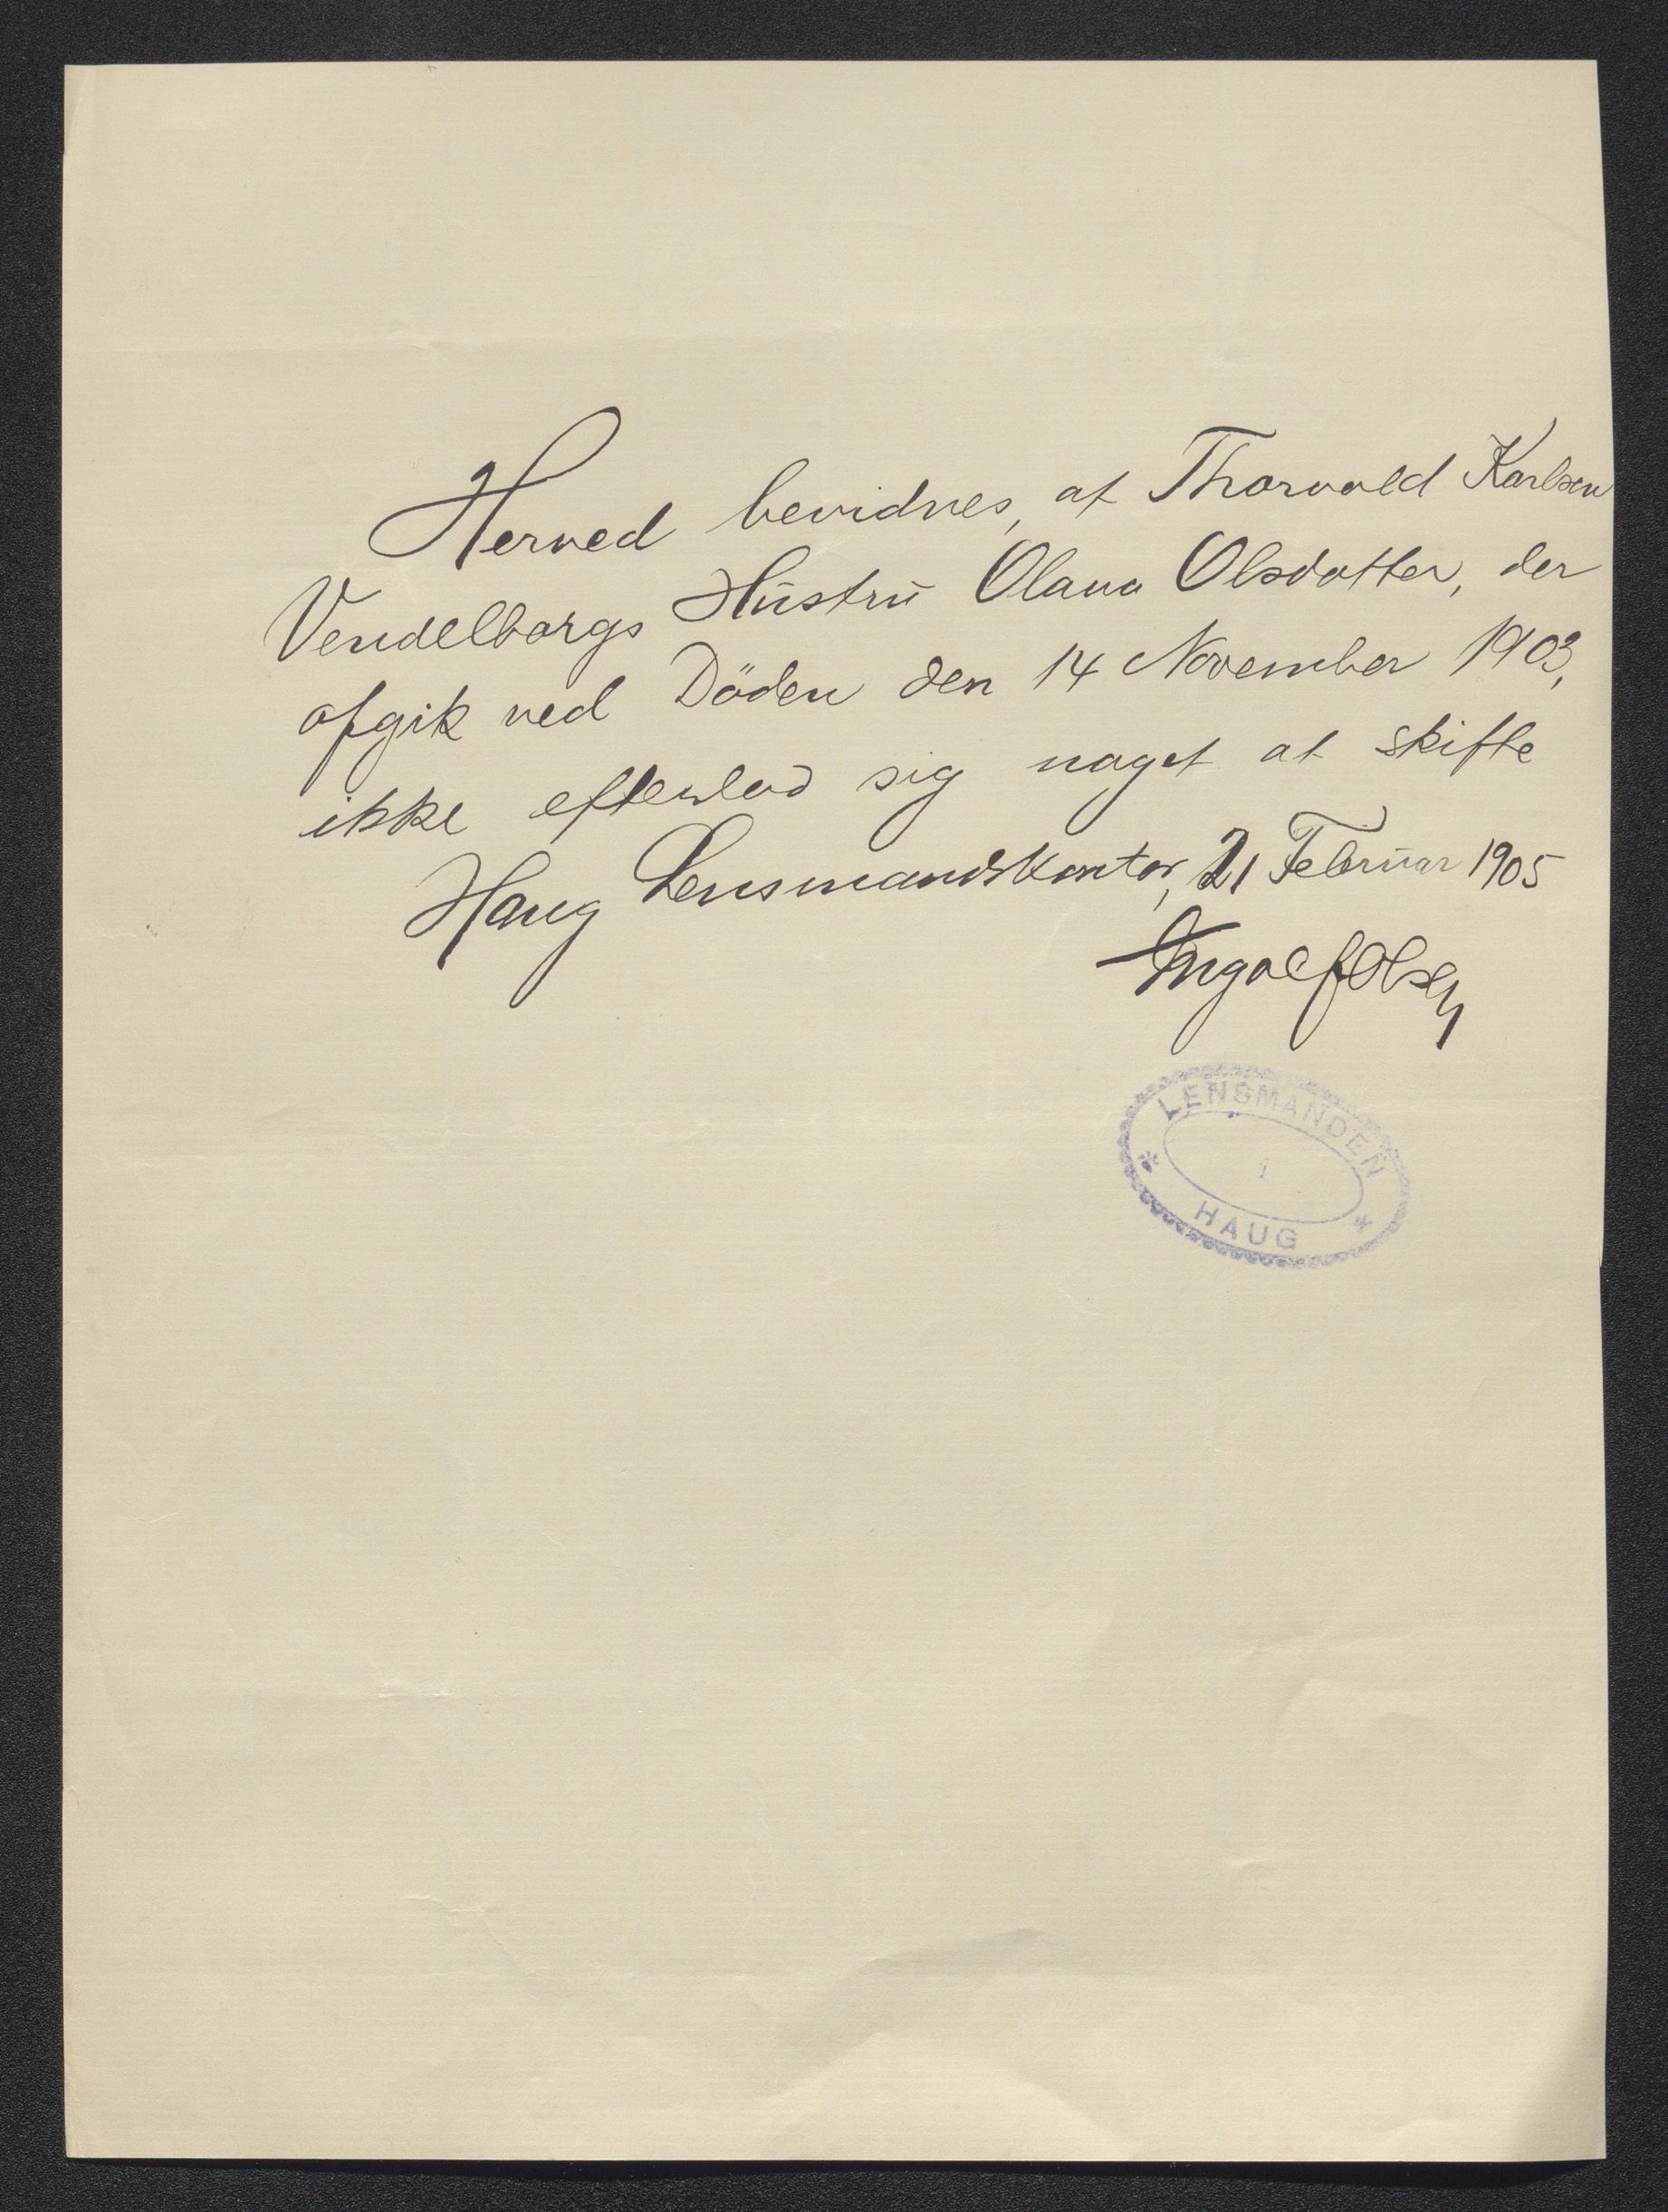 Herved bevidnes, at Thorvald Karlsen
Vendelborgs Hustru Olava Olsdatter, der
afgik ved Döden den 14 November 1903,
ikke efterlod sig noget at skifte
Haug Lensmandskontor, 21 Februar 1905
Ingolf Olsen
LENSMANDEN
i
HAUG